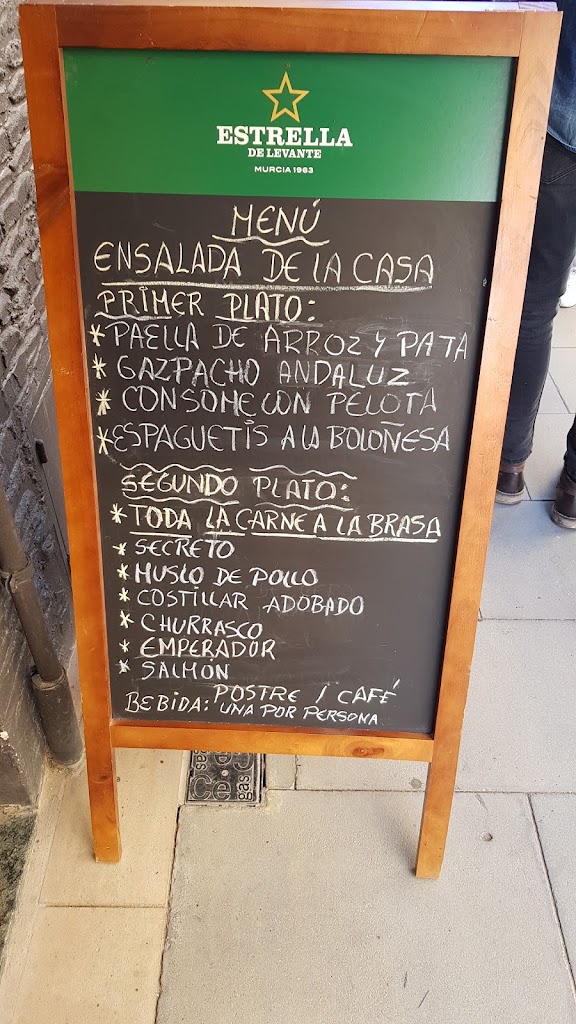 ESTRELLA
DE LEVANTE
MURCIA 1963
MENÚ
ENSALADA DE LA CASA
PRIMER PLATO:
*PAELLA DE ARROZ Y PATA
*GAZPACHO ANDALUZ
*CONSOME CON PELOTA
*ESPAGUETÍS A LA BOLOÑESA
SEGUNDO PLATO:
*TODA LA CARNE A LA BRASA
*SECRETO
*MUSLO DE POLLO
*COSTILLAR ADOBADO
*CHURRASCO
*EMPERADOR
*SALMÓN
POSTRE / CAFÉ
BEBIDA: UNA POR PERSONA
gas